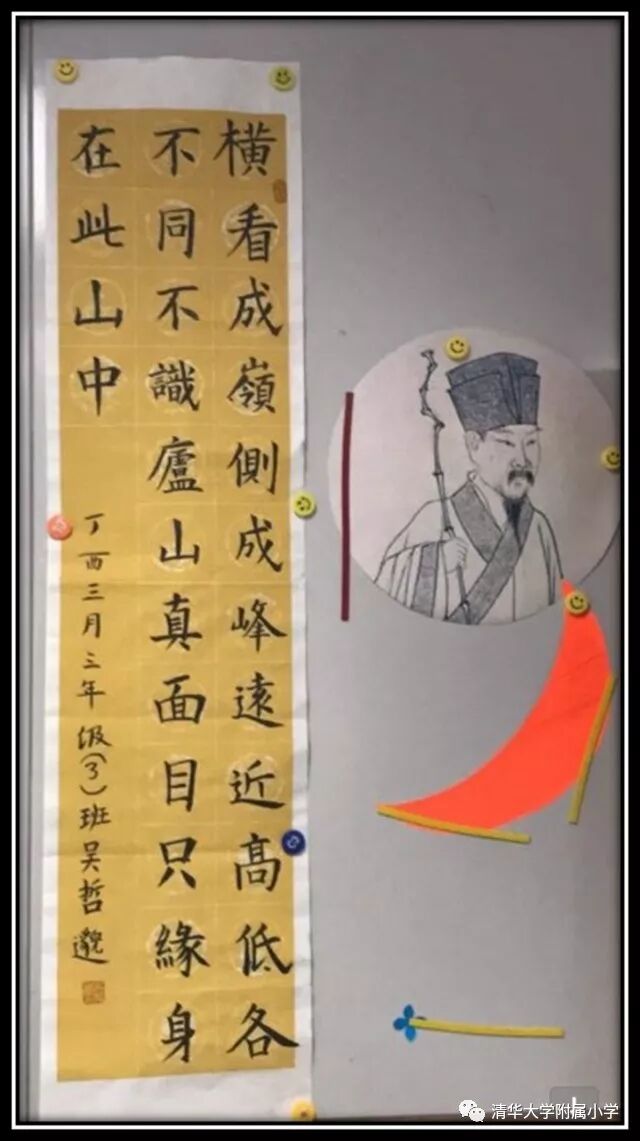 橫看成嶺側成峰遠近高低各
不同不識廬山真面目只緣身
在此山中
丁酉三月三年级(3)班吴哲邈
清华大学附属小学